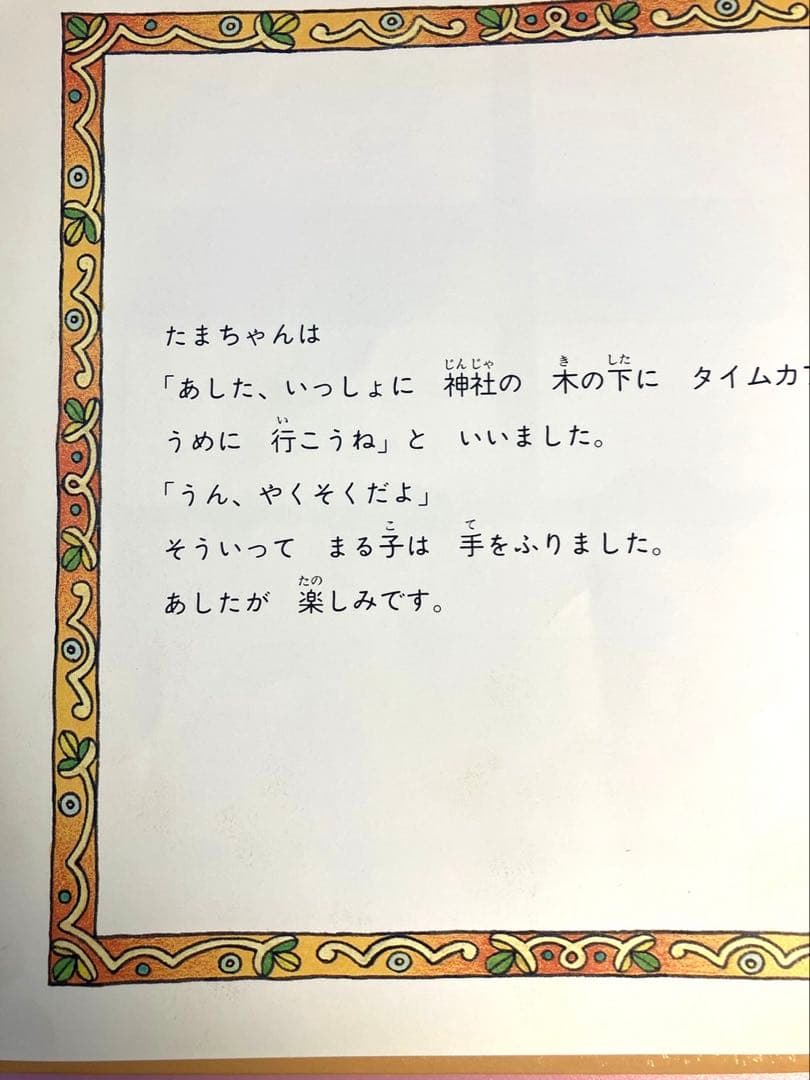 たまちゃんは
「あした、いっしょに　神社の　木の下に　タイムカ
うめに　行こうね」と　いいました。
「うん、やくそくだよ」
そういって　まる子は　手をふりました。
あしたが　楽しみです。